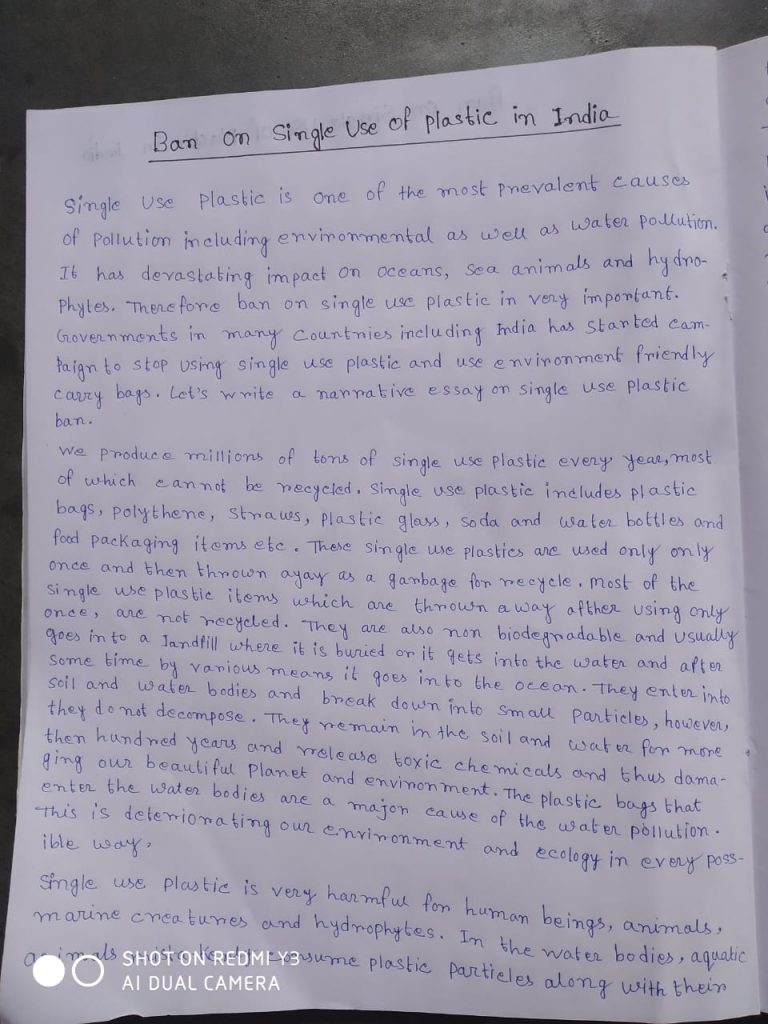 Ban on Single Use of plastic in India
Single Use Plastic is one of the most prevalent causes
of pollution including environmental as well as water pollution.
It has devastating impact on oceans, sea animals and hydro-
phytes. Therefore ban on single use plastic in very important.
Governments in many Countries including India has started cam-
paign to stop using single use plastic and use environment friendly
carry bags. Let's write a narrative essay on single use plastic
ban.
We produce millions of tons of single use plastic every year, most
of which cannot be recycled. Single use plastic includes plastic
bags, polythene, straws, plastic glass, soda and water bottles and
food packaging items etc. These single use plastics are used only only
once and then thrown ayay as a garbage for recycle. Most of the
single use plastic items which are thrown away after using only
once, are not recycled. They are also non biodegradable and usually
goes into a landfill where it is buried or it gets into the water and after
some time by various means it goes into the ocean. They enter into
soil and water bodies and break down into small particles, however,
they do not decompose. They remain in the soil and water for more
then hundred years and release toxic chemicals and thus dama-
ging our beautiful planet and environment. The plastic bags that
enter the water bodies are a major cause of the water pollution.
This is deteriorating our environment and ecology in every poss-
ible way.
Single use plastic is very harmful for human beings, animals,
marine creatures and hydrophytes. In the water bodies, aquatic
animals consume plastic particles along with their
SHOT ON REDMI Y3
AI DUAL CAMERA